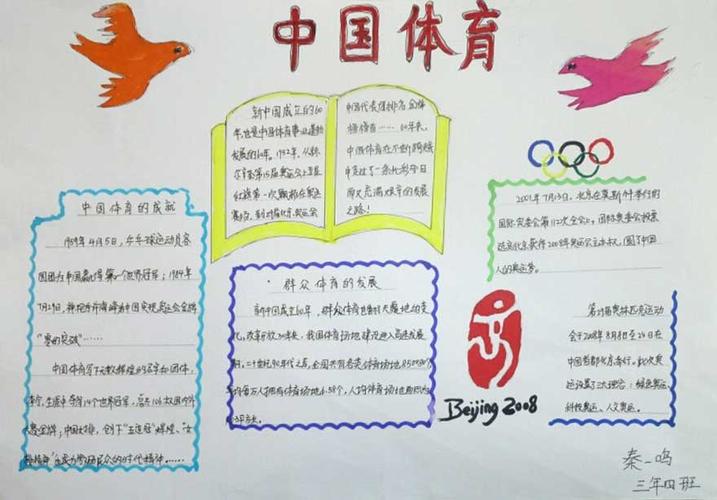 中国体育
新中国成立的60
年,也是中国体育事业蓬勃
发展的60年。1952年,从赫
尔辛基第15届奥运会上五星
红旗第一次飘扬在奥运
赛场,到北京奥运会
中国代表团排名金牌
榜榜首……60年来,
中国体育在不断跨越
中走过了一条光彩夺目
而又充满艰辛的发展
之路!
2001年7月13日,北京在莫斯科举行的
国际奥委会第112次全会上,国际奥委会投票
选定北京获得2008年奥运会主办权,圆了中国
人的奥运梦。
中国体育的成就
1959年4月5日,乒乓球运动员容
国团为中国赢得第一个世界冠军;1984年
7月29日,神枪手许海峰为中国实现奥运会金牌
“零的突破”……
中国体育
14个世界冠军,
金牌;中国女排,创下“五连冠”辉煌、“女
排精神”时代精神……
群众体育的发展
新中国成立60年,群众体育也有了大履地的变
化,改革开放30年来,我国体育场地建设进入高速发展
期。二十世纪90年代之前,全国共有各类体育场地
平均每万人拥有体育场地6.58个,人均体育场地面积
平方米。
Beijing 2008
第29届奥林匹克运动
会于2008年8月8日至24日在
中国首都北京举行。此次奥
运会有三大理念:绿色奥运、
科技奥运、人文奥运。
秦一鸣
三年四班